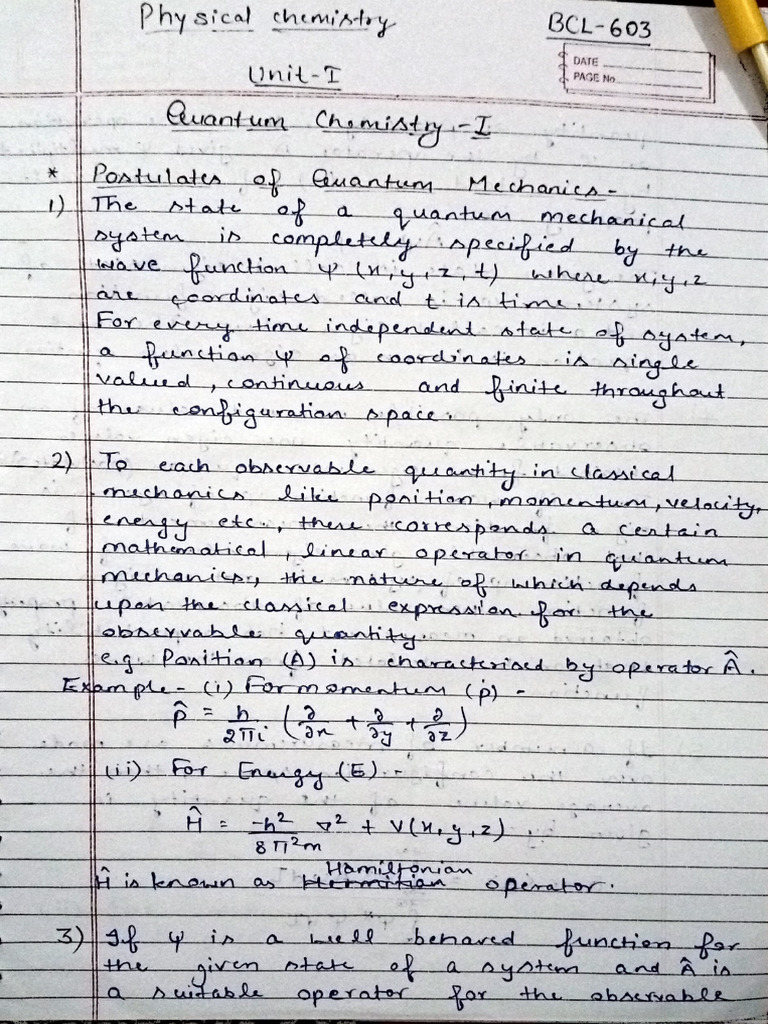 Physical chemistry
BCL-603
DATE
PAGE No.
Unit-I
Quantum Chemistry-I
* Postulates of Quantum Mechanics-
1) The state of a quantum mechanical
system is completely specified by the
wave function ψ (x, y, z, t) where x, y, z
are coordinates and t is time.
For every time independent state of system,
a function ψ of coordinates is single
valued, continuous and finite throughout
the configuration space.
2) To each observable quantity in classical
mechanics like position, momentum, velocity,
energy etc., there corresponds a certain
mathematical, linear operator in quantum
mechanics, the nature of which depends
upon the classical expression for the
observable quantity.
e.g. Position (A) is characterised by operator Â.
Example- (i) For momentum (p) -
p̂ = h/2πi (∂/∂x + ∂/∂y + ∂/∂z)
(ii) For Energy (E) -
Ĥ = -h²/8π²m ∇² + V(x, y, z).
Hamiltonian
Ĥ is known as Hermitian operator.
3) If ψ is a well behaved function for
the given state of a system and Â is
a suitable operator for the observable